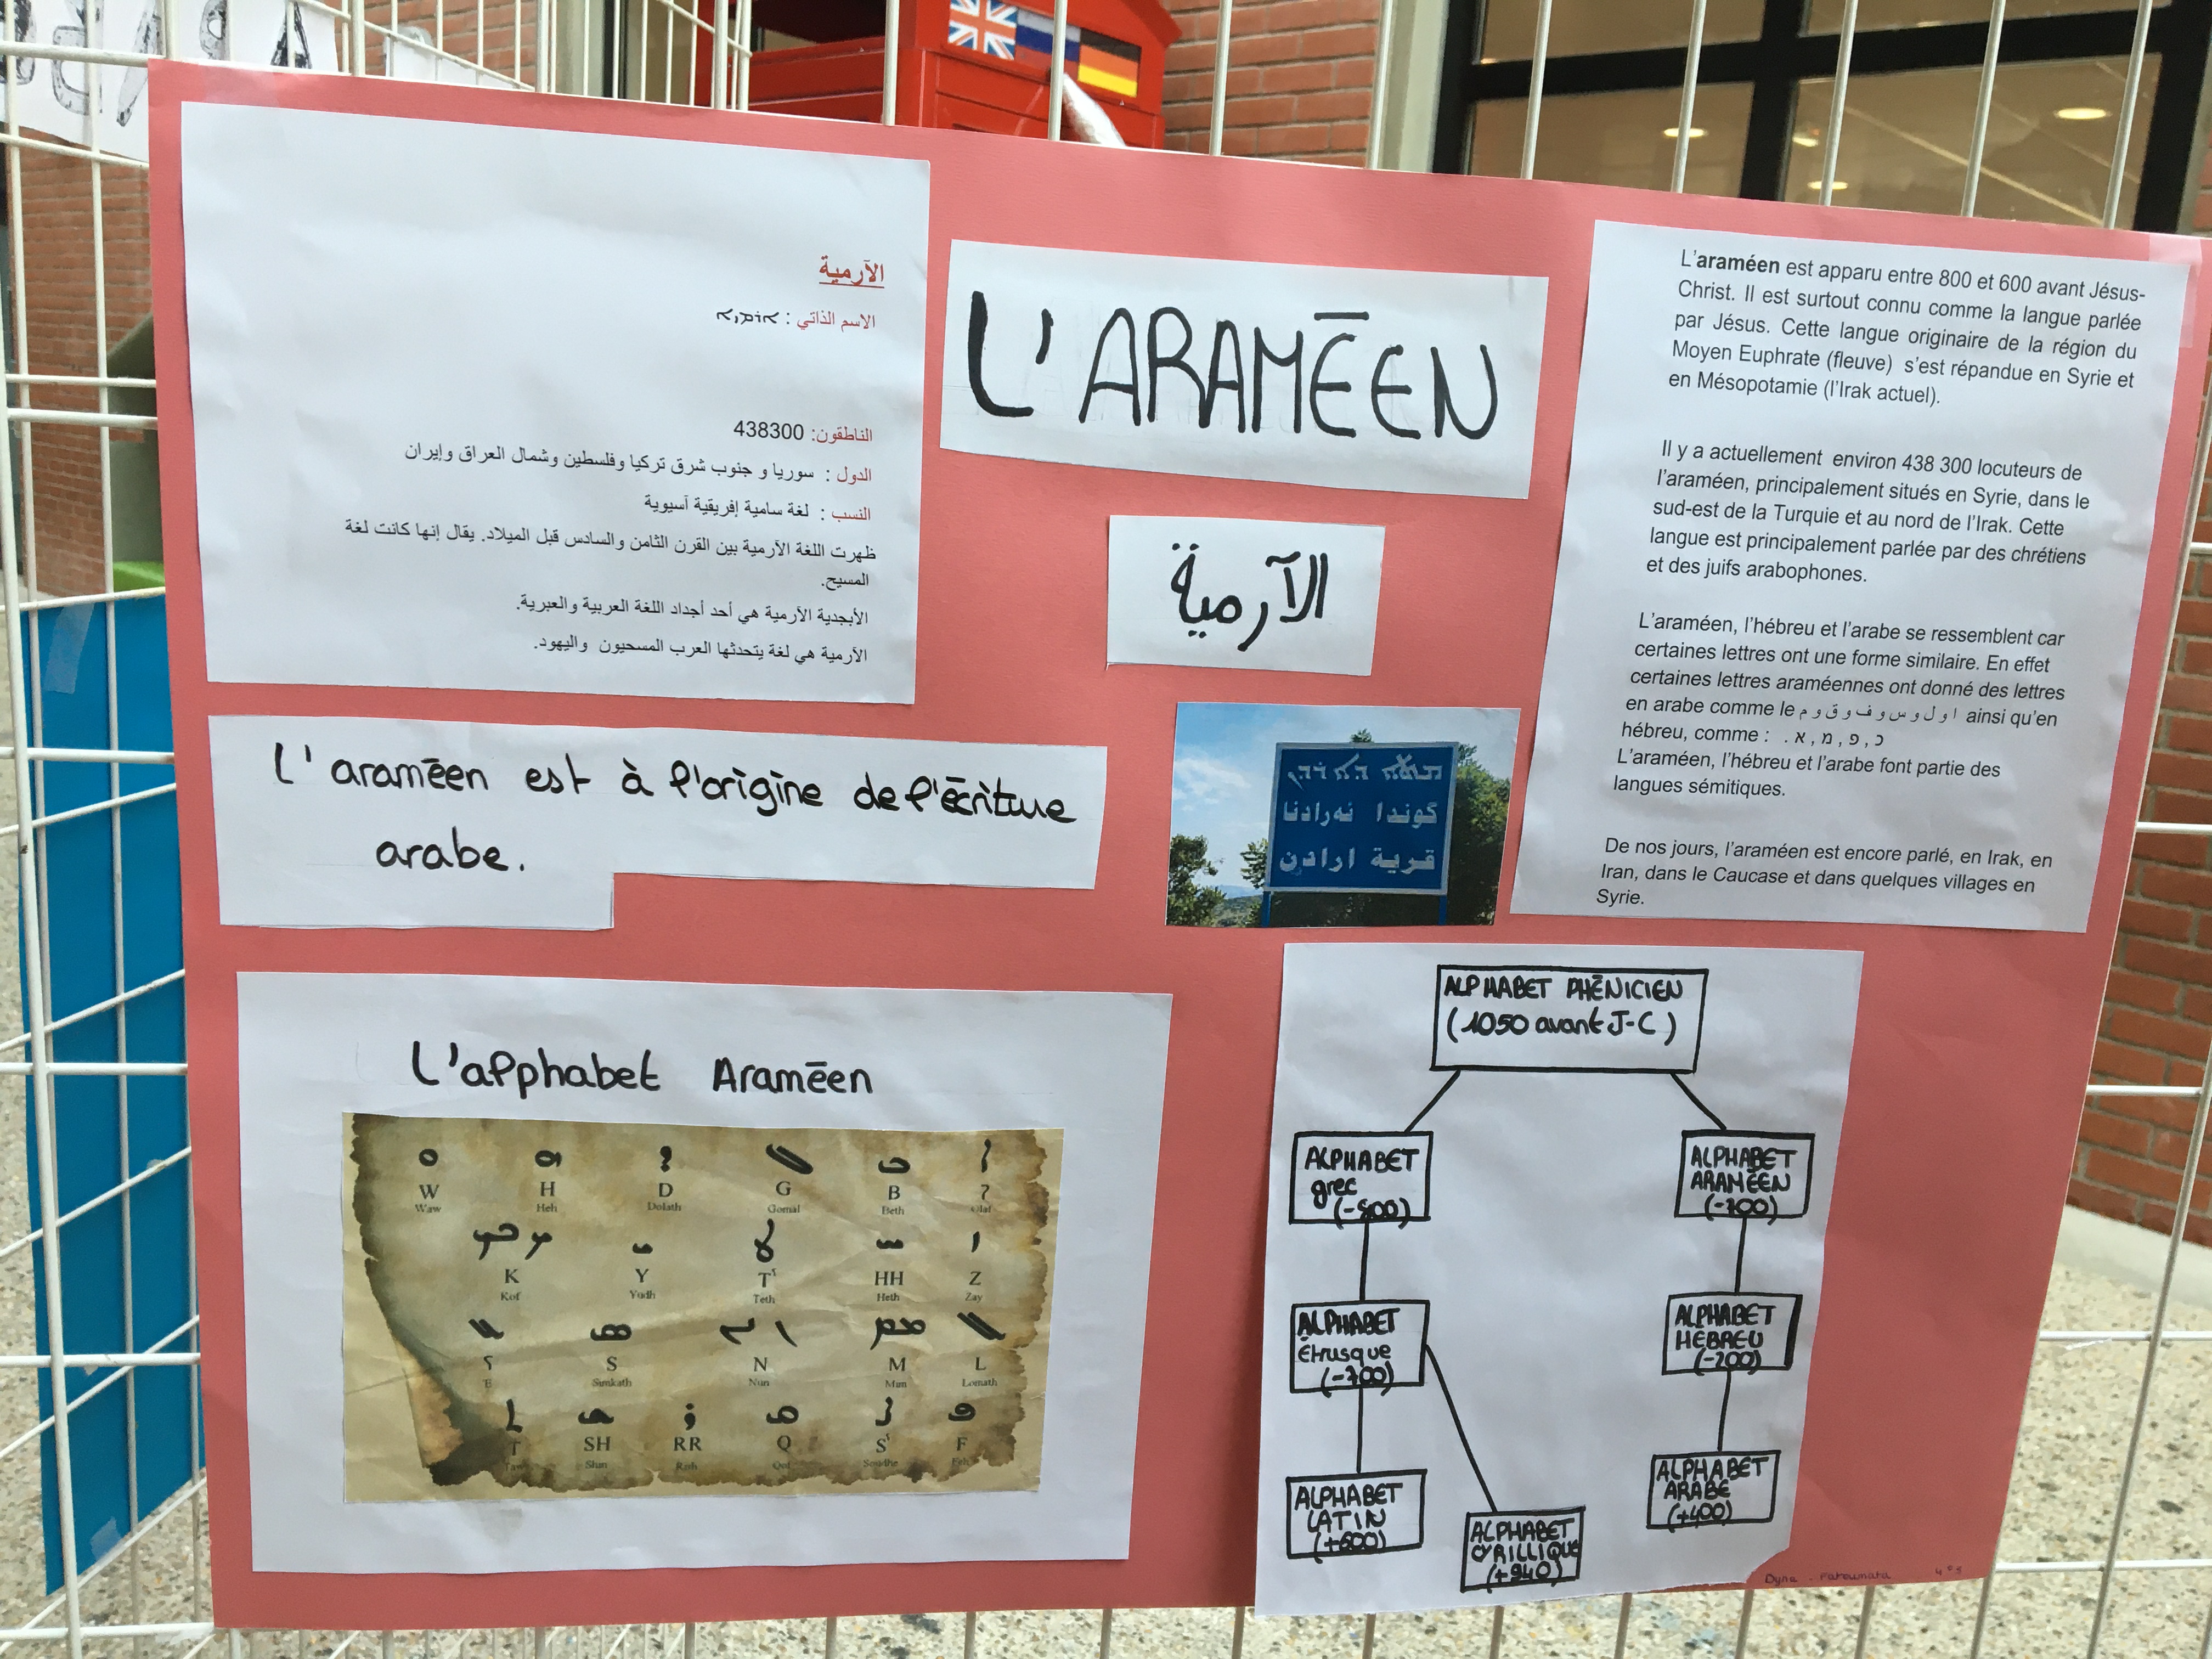 الآرمية
الاسم الذاتي : ܐܪܡܝܐ
الناطقون: 438300
الدول : سوريا و جنوب شرق تركيا وفلسطين وشمال العراق وإيران
النسب : لغة سامية إفريقية آسيوية
ظهرت اللغة الآرمية بين القرن الثامن والسادس قبل الميلاد. يقال إنها كانت لغة
المسيح.
الأبجدية الآرمية هي أحد أجداد اللغة العربية والعبرية.
الآرمية هي لغة يتحدثها العرب المسحيون واليهود.
L'ARAMĒEN
الآرمية
L'araméen est apparu entre 800 et 600 avant Jésus-
Christ. Il est surtout connu comme la langue parlée
par Jésus. Cette langue originaire de la région du
Moyen Euphrate (fleuve) s'est répandue en Syrie et
en Mésopotamie (l'Irak actuel).
Il y a actuellement environ 438 300 locuteurs de
l'araméen, principalement situés en Syrie, dans le
sud-est de la Turquie et au nord de l'Irak. Cette
langue est principalement parlée par des chrétiens
et des juifs arabophones.
L'araméen, l'hébreu et l'arabe se ressemblent car
certaines lettres ont une forme similaire. En effet
certaines lettres araméennes ont donné des lettres
en arabe comme le ا و ل و س و ف و ق و م ainsi qu'en
hébreu, comme : . א , מ , פ , כ
L'araméen, l'hébreu et l'arabe font partie des
langues sémitiques.
De nos jours, l'araméen est encore parlé, en Irak, en
Iran, dans le Caucase et dans quelques villages en
Syrie.
L'aramēen est à l'origine de l'ēcriture
arabe.
گوندا ئەرادنا
قرية ارادن
L'alphabet Aramēen
W H D G B
Waw Heh Dolath Gomal Beth Olaf
K Y T' HH Z
Kof Yudh Teth Heth Zay
S N M L
'E Simkath Nun Mim Lomath
T SH RR Q S' F
Taw Shin Rish Qof Soodhe Feh
ALPHABET PHĒNICIEN
(1050 avant J-C)
ALPHABET
grec
(-800)
ALPHABET
ARAMÉEN
ALPHABET
Étrusque
(-700)
ALPHABET
HÉBREU
(-200)
ALPHABET
LATIN
(+600)
ALPHABET
CYRILLIQUE
(+940)
ALPHABET
ARABE
(+400)
Dyna . Fatoumata